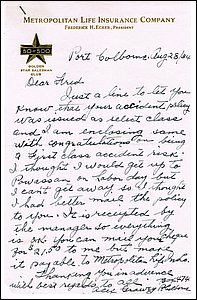 METROPOLITAN LIFE INSURANCE COMPANY
FREDERICK H. ECKER, PRESIDENT
50-500
STAR SALESMAN
CLUB
Port Colborne, Aug 28/34
Dear Fred
Just a line to let you
know that your accident policy
was issued as select class
and I am enclosing same
with congratulations on being
a "first class accident risk"
I thought I would get up to
Powassan on labor day but
I can't get away so I thought
I had better mail the policy
to you. It is receipted by
the manager so everything
is OK you can mail your cheque
for 21.50 to me but make
it payable to Metropolitan Life Ins.
Thanking you in advance
with best regards to all